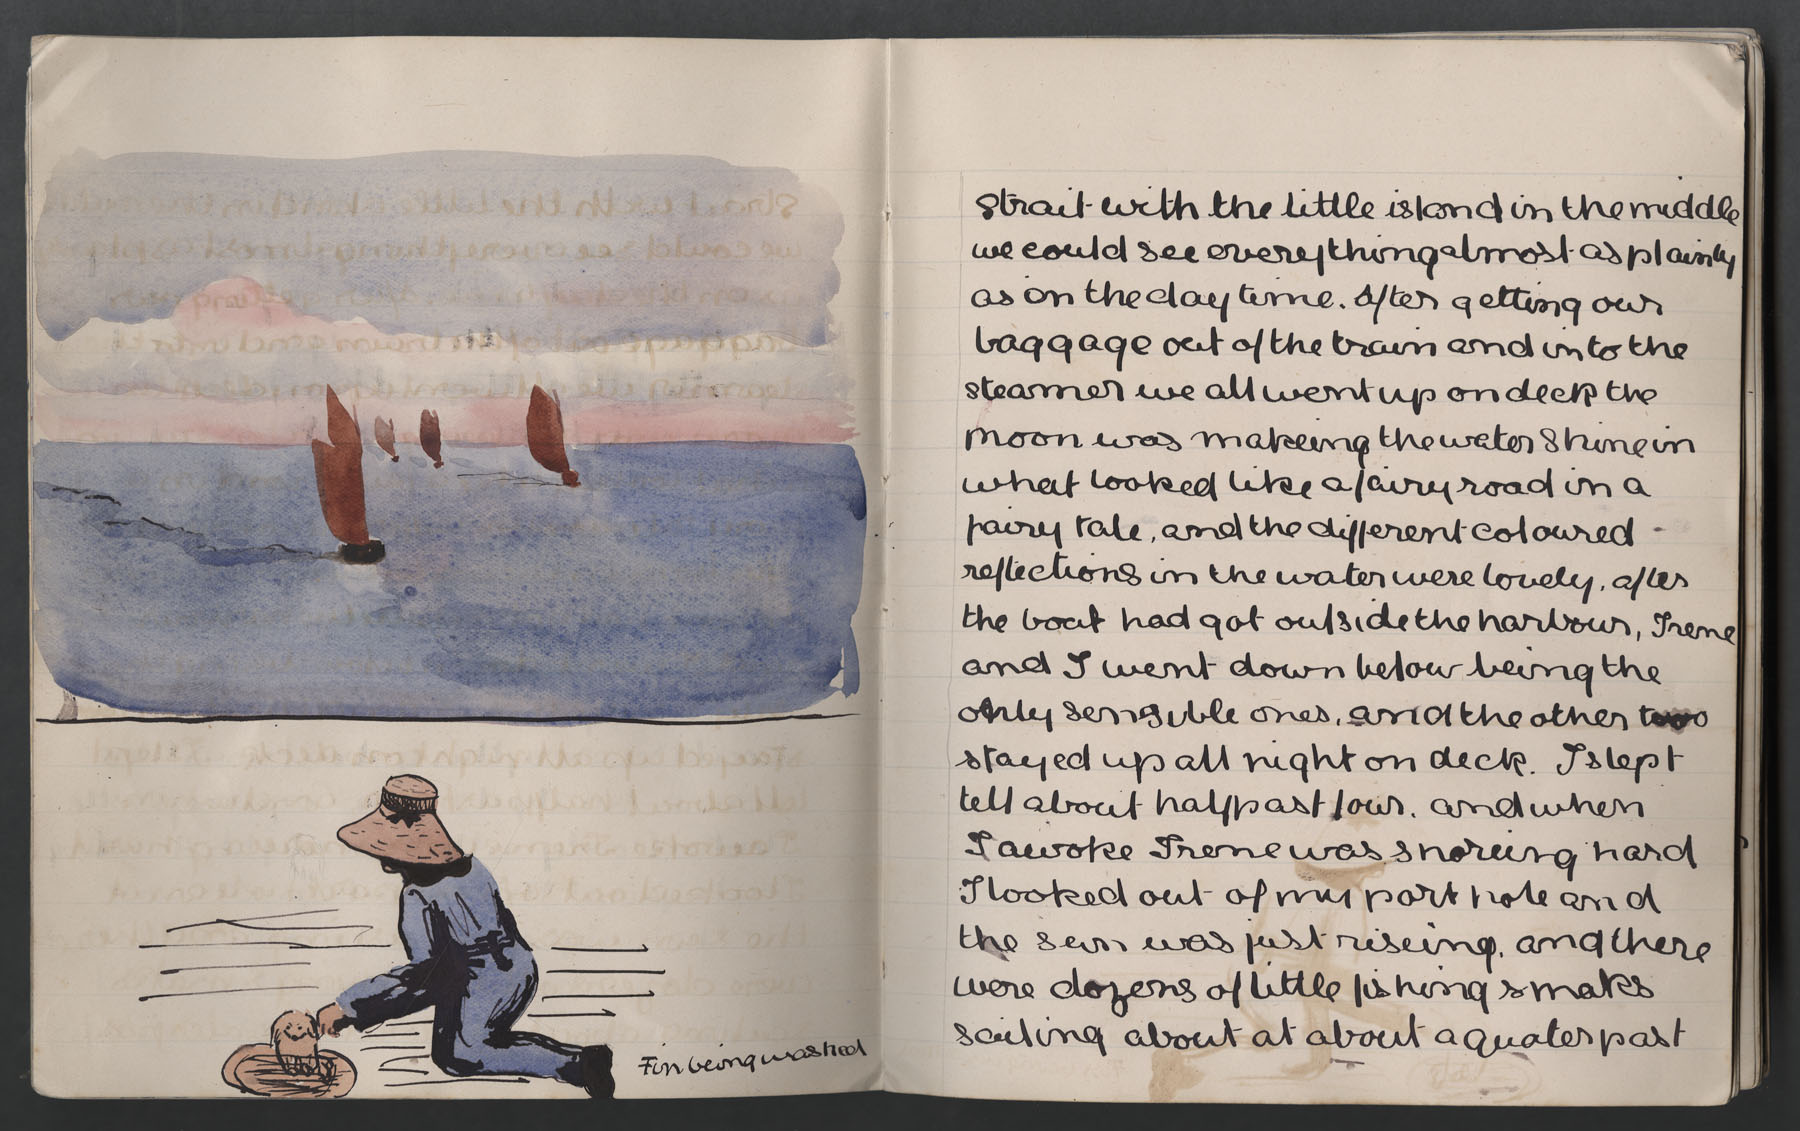 Fin being washed
strait with the little island in the middle
we could see everything almost as plainly
as on the day time. After getting our
baggage out of the train and into the
steamer we all went up on deck the
moon was makeing the water shine in
what looked like a fairy road in a
fairy tale, and the different coloured -
reflections in the water were lovely. after
the boat had got outside the harbour, Irene
and I went down below being the
only sensible ones, and the other two
stayed up all night on deck. I slept
tell about half past four. and when
I awoke Irene was snoreing hard
I looked out of my port hole and
the sun was just riseing, and there
were dozens of little fishing smaks
sailing about at about a quater past